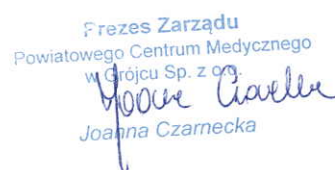 Prezes Zarządu
Powiatowego Centrum Medycznego
w Grójcu Sp. z o.o.
Joanna Czarnecka